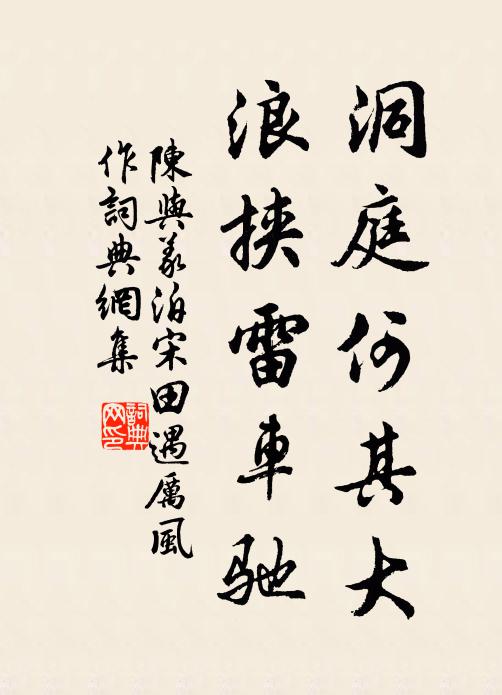 洞庭何其大
浪挾雷車馳
陳與義泊宋田遇厲風
作詞典網集
詞典网印